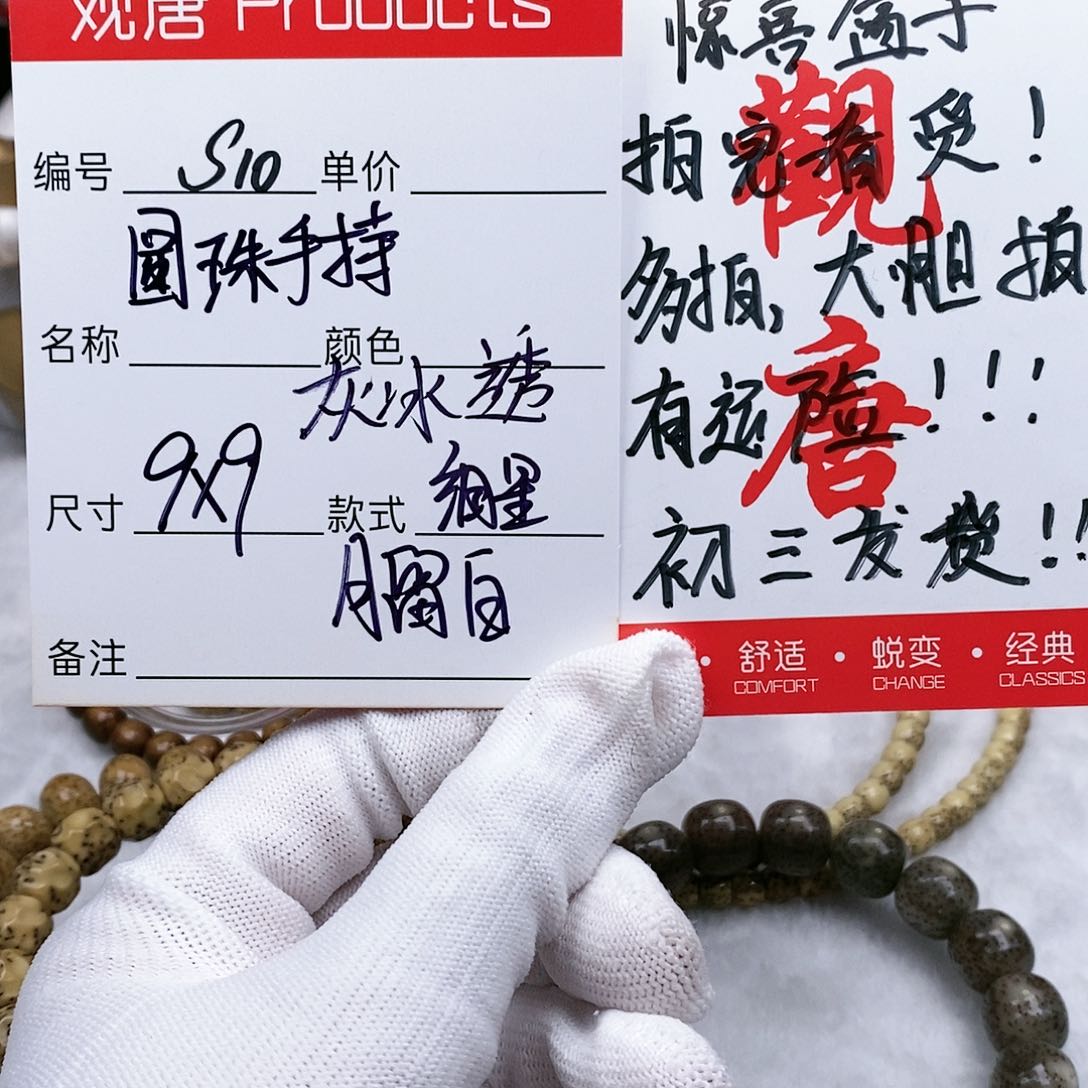 观唐 Products
编号 S10 单价
圆珠手持
名称 颜色
灰冰糖
尺寸 9x9 款式 细星
月留白
备注
惊喜盒子
拍完有受！
多拍，大胆拍
有运险！！！
初三发货！！
觀唐
舒适 · 蜕变 · 经典
COMFORT CHANGE CLASSICS